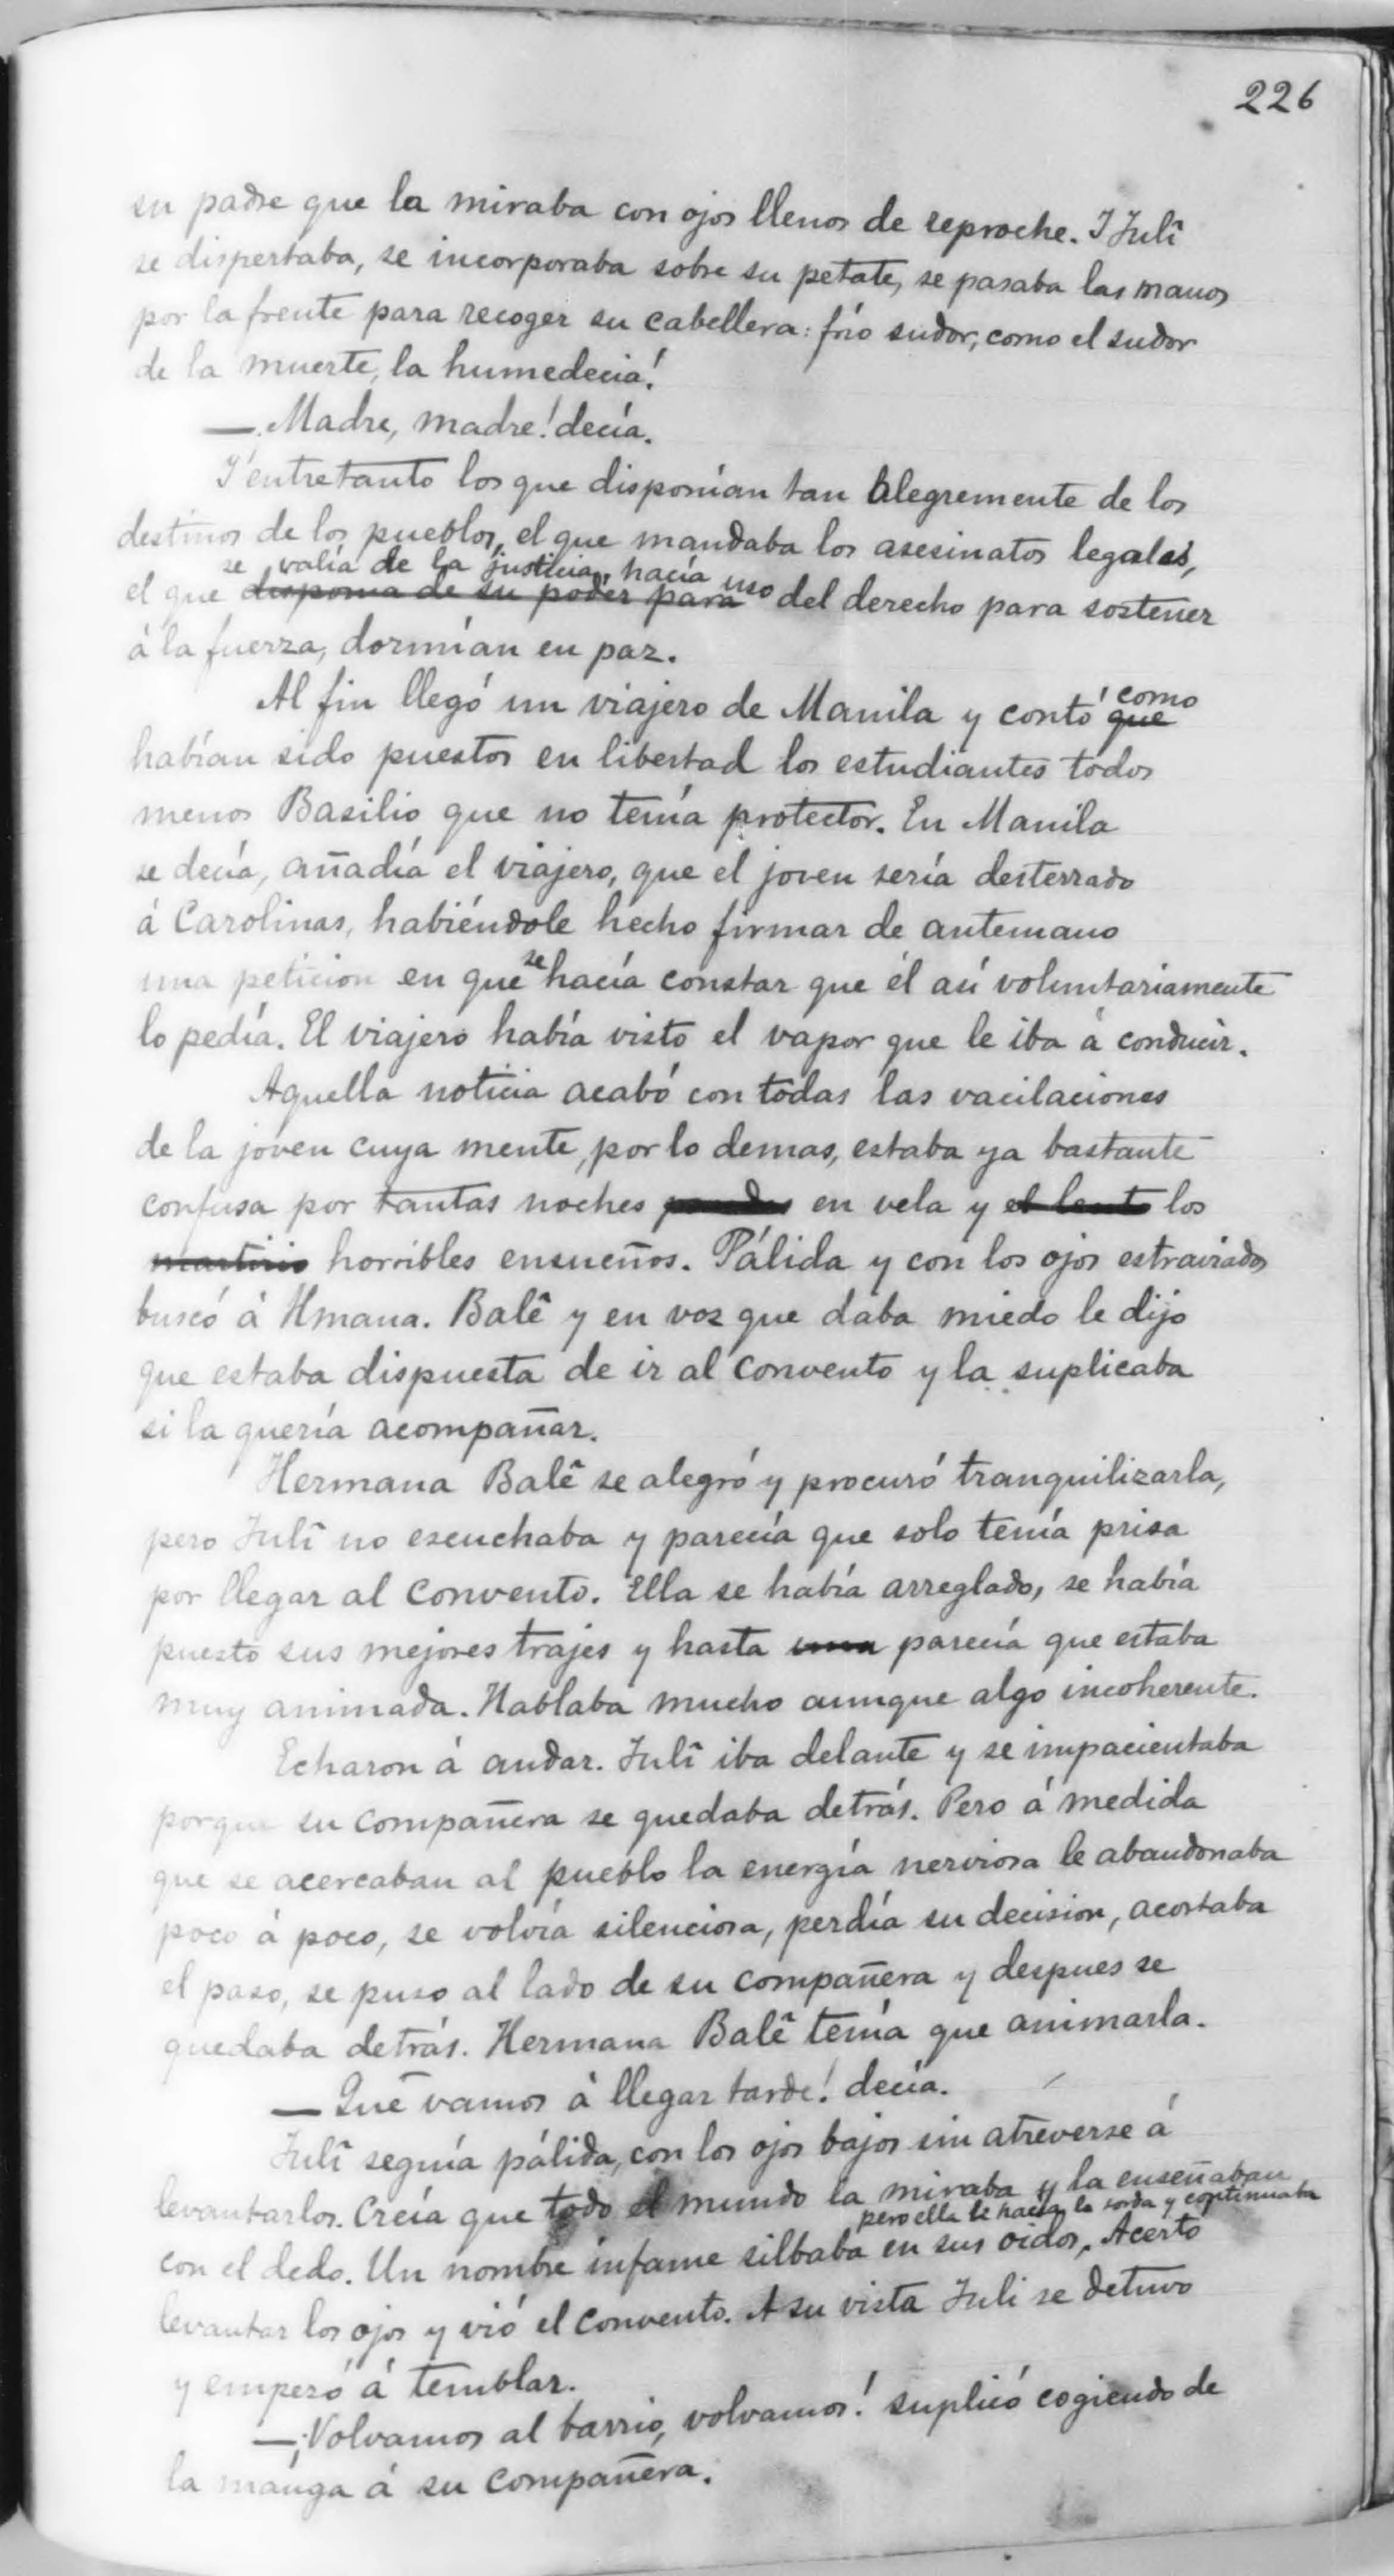 226
su padre que la miraba con ojos llenos de reproche. I Julî
se dispertaba, se incorporaba sobre su petate, se pasaba las manos
por la frente para recoger su cabellera: frío sudor, como el sudor
de la muerte, la humedecia!
—¡Madre, madre! decía.
Y entretanto los que disponían tan alegremente de los
destinos de los pueblos, el que mandaba los asesinatos legales,
se valía de la justicia, hacía uso
el que disponía de su poder para del derecho para sostener
á la fuerza, dormían en paz.
como
Al fin llegó un viajero de Manila y contó que
habían sido puestos en libertad los estudiantes todos
menos Basilio que no tenía protector. En Manila
se decía, añadía el viajero, que el joven sería desterrado
á Carolinas, habiéndole hecho firmar de antemano
una peticion en que se hacía constar que él así voluntariamente
lo pedía. El viajero había visto el vapor que le iba á conducir.
Aquella noticia acabó con todas las vacilaciones
de la joven cuya mente, por lo demas, estaba ya bastante
confusa por tantas noches en vela y el lento los
martirio horribles ensueños. Pálida y con los ojos estraviados
buscó á Hmana. Balê y en voz que daba miedo le dijo
que estaba dispuesta de ir al convento y la suplicaba
si la quería acompañar.
Hermana Balê se alegró y procuró tranquilizarla,
pero Julî no escuchaba y parecía que solo tenía prisa
por llegar al convento. Ella se había arreglado, se había
puesto sus mejores trajes y hasta una parecía que estaba
muy animada. Hablaba mucho aunque algo incoherente.
Echaron á andar. Julî iba delante y se impacientaba
porque su compañera se quedaba detrás. Pero á medida
que se acercaban al pueblo la energía nerviosa le abandonaba
poco á poco, se volvía silenciosa, perdía su decision, acortaba
el paso, se puso al lado de su compañera y despues se
quedaba detrás. Hermana Balê tenía que animarla.
—Que vamos á llegar tarde! decía.
Julî seguía pálida, con los ojos bajos sin atreverse á
levantarlos. Creía que todo el mundo la miraba y la enseñaban
pero ella se hacía la sorda y continuaba
con el dedo. Un nombre infame silbaba en sus oidos, Acertó
levantar los ojos y vió el convento. A su vista Juli se detuvo
y empezó á temblar.
—¡Volvamos al barrio, volvamos! suplicó cogiendo de
la manga á su compañera.